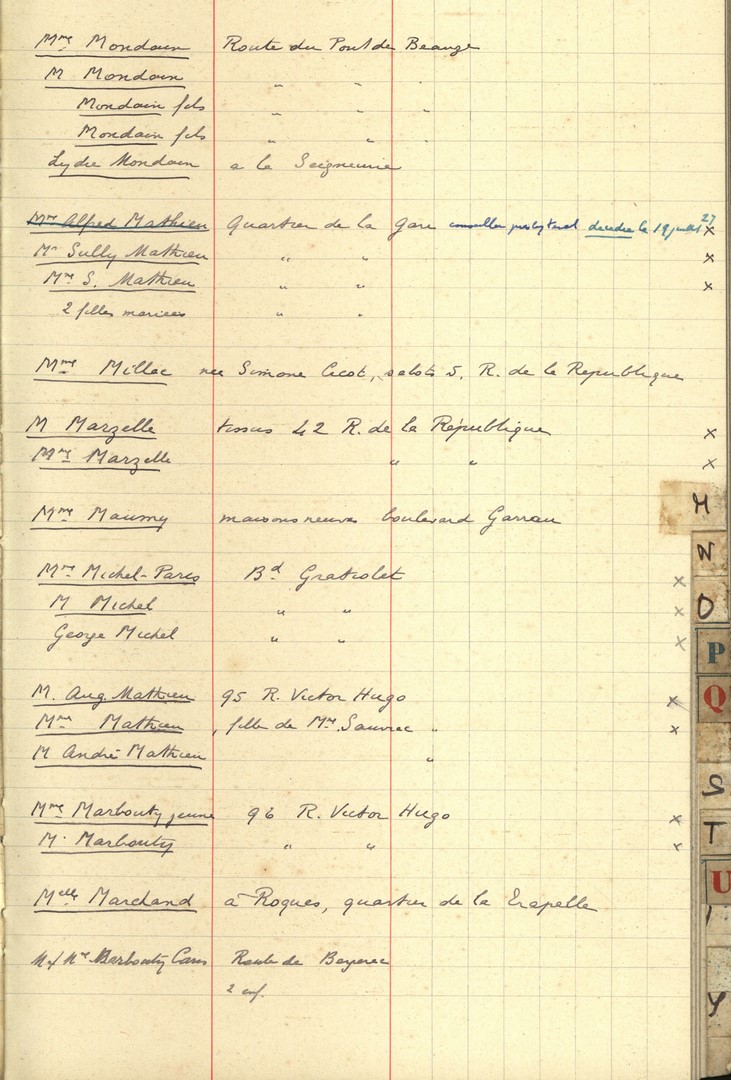 Mme Mondain Route du Pont de Beauze
M Mondain " " "
Mondain fils " " "
Mondain fils " " "
Lydie Mondain a la Seigneurie
Mr Alfred Mathieu Quartier de la Gare conseiller presbyteral décédé le 19 juillet 27 x
Mr Sully Mathieu " " x
Mme S. Mathieu " " x
2 filles mariées " "
Mme Millac nee Simone Cicot, sabots 5. R. de la Republique
M Marzelle tissus 42 R. de la République x
Mme Marzelle " " x
Mme Maumy maisons neuves boulevard Garrau
M
N
Mme Michel-Paris Bd Gratiolet x
M Michel " " x
O
George Michel " " x
P
M. Aug. Mathieu 95 R. Victor Hugo x
Q
Mme Mathieu, fille de Mme Sauvac " x
M André Mathieu "
S
Mme Marbouty jeune 96 R. Victor Hugo x
T
M. Marbouty " " x
U
Melle Marchand à Roques, quartier de la
M et Me Barbouty Route de
2 enf.
Y